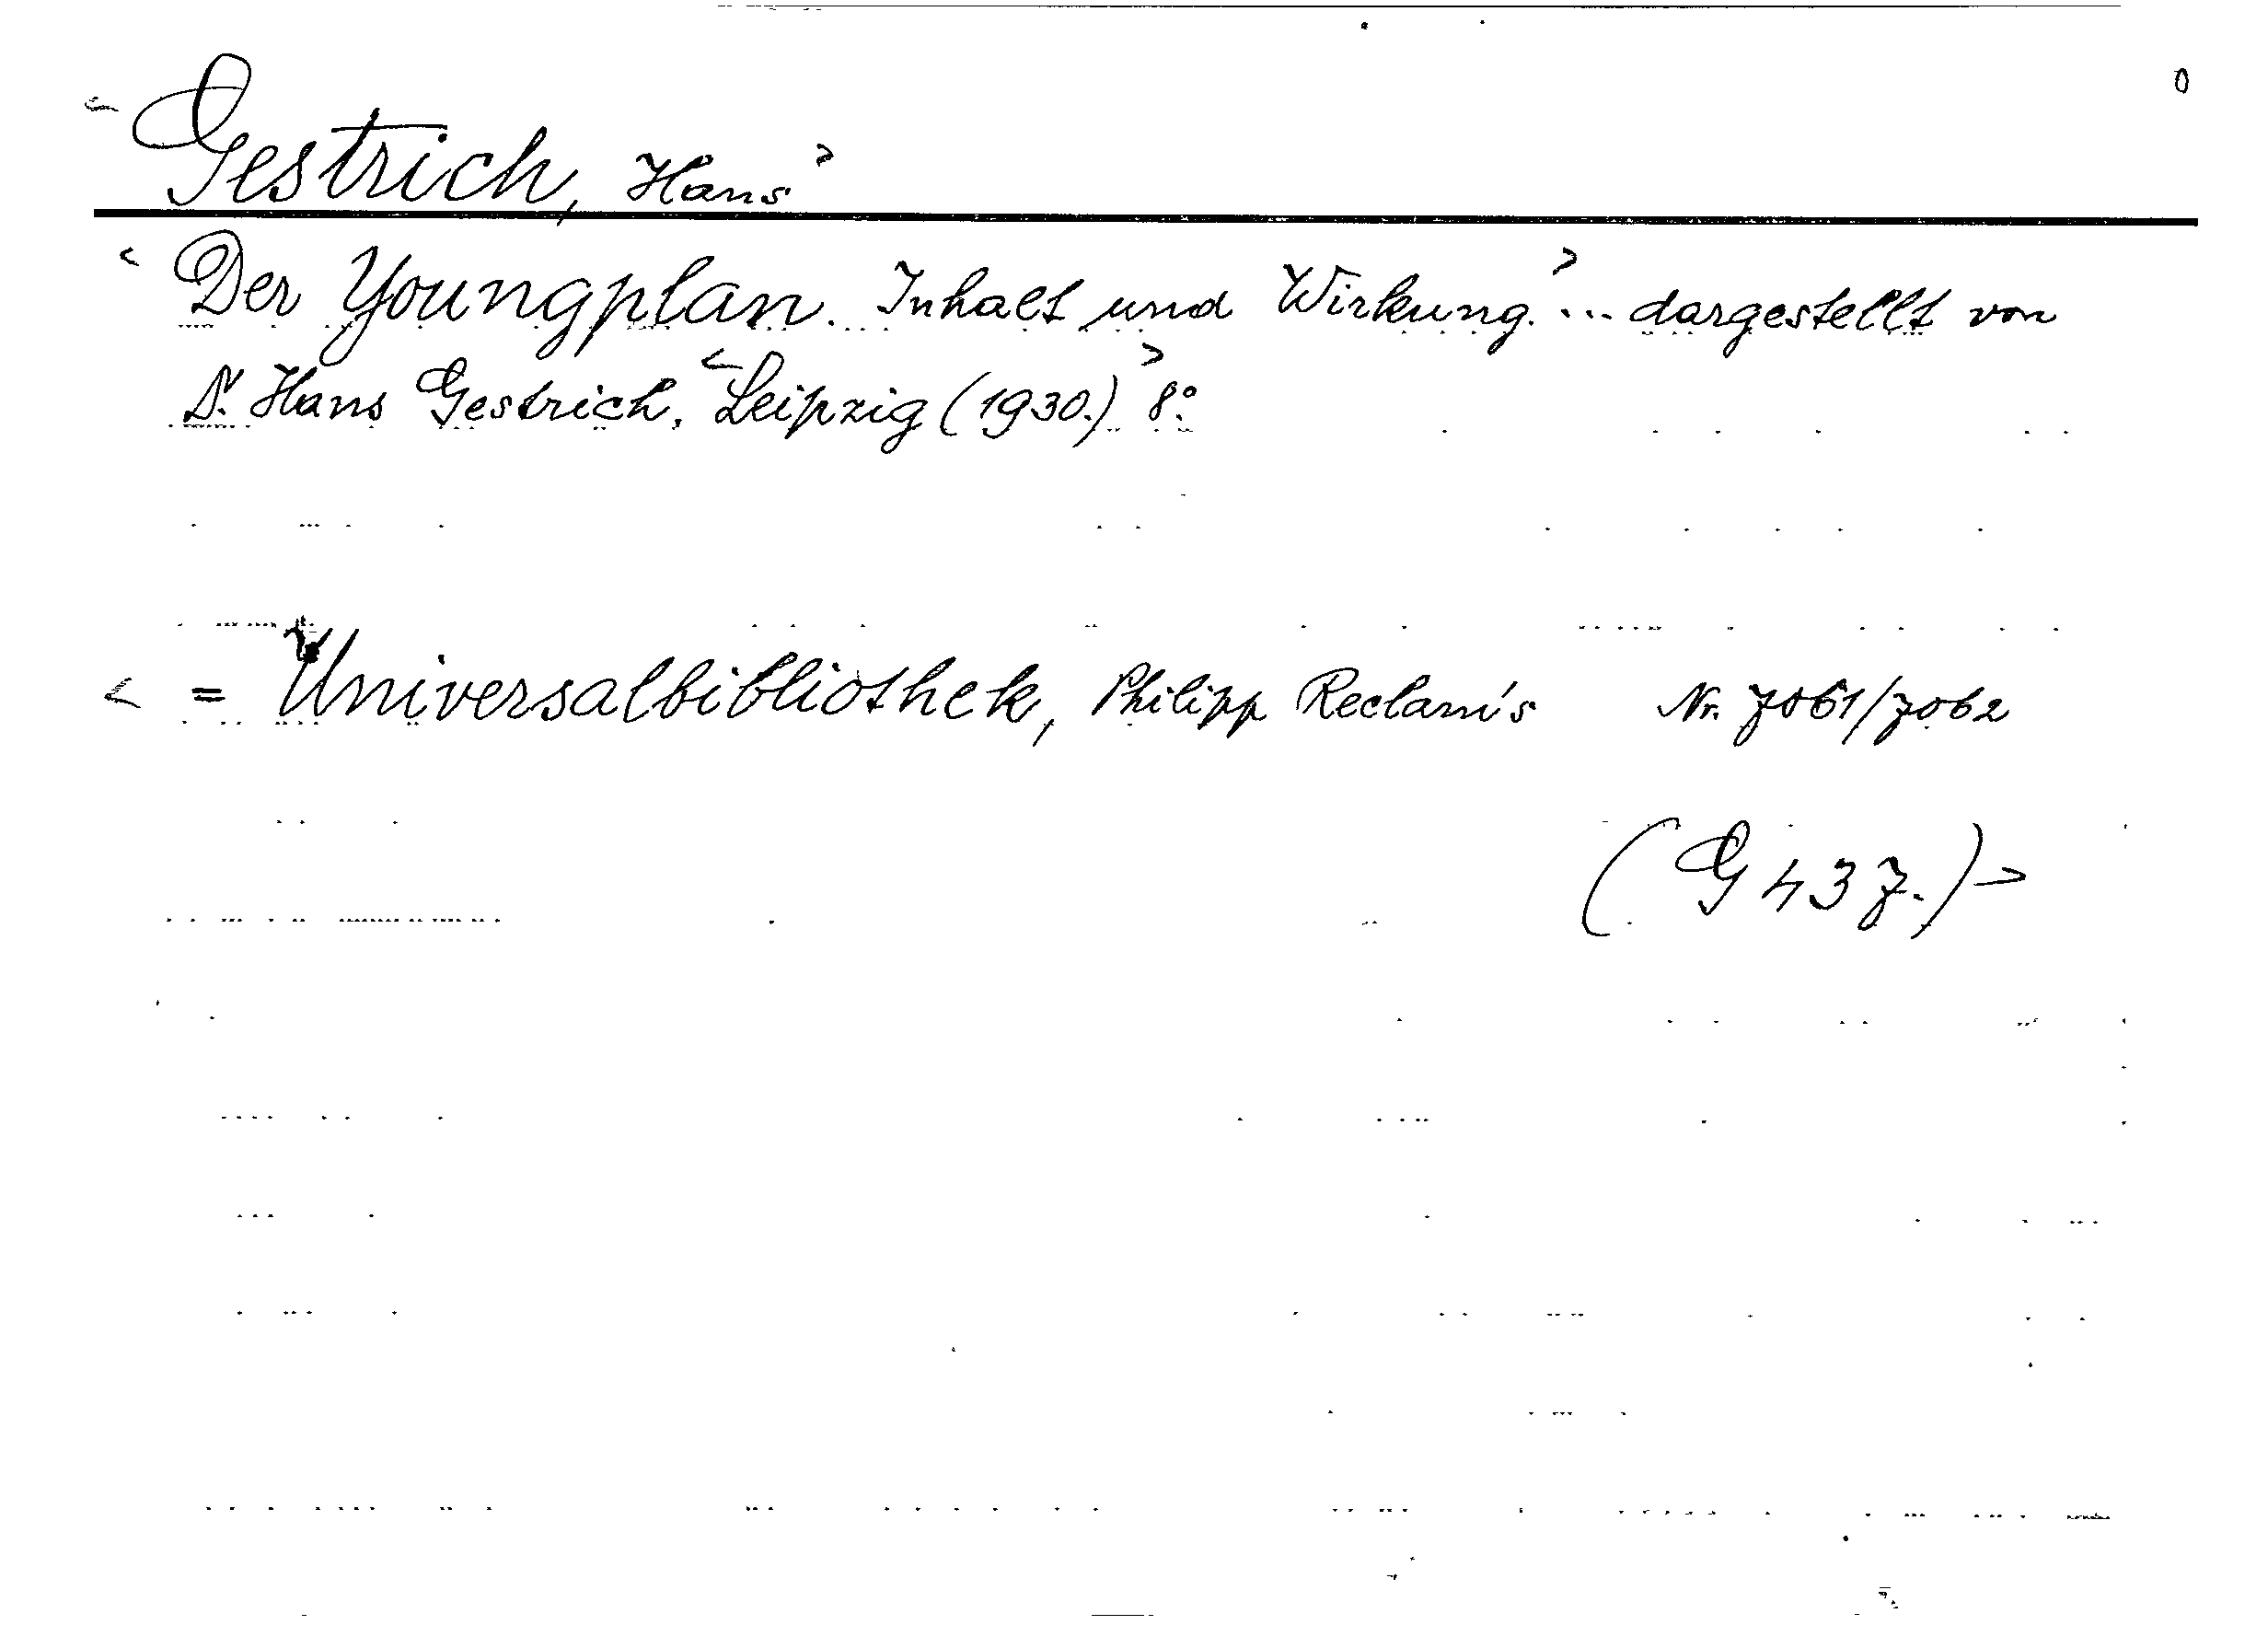 0
< Gestrich, Hans >
< Der Youngplan. Inhalt und Wirkung. > ... dargestellt von
Dr. Hans Gestrich. < Leipzig (1930.) > 8°.
< = Universalbibliothek, Philipp Reclam's Nr. 7061/7062
(G 437.) >